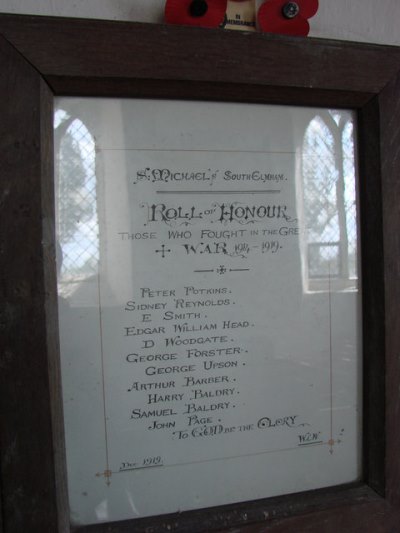 IN
REMEMBRANCE
St. MICHAEL'S SOUTH ELMHAM.
ROLL OF HONOUR
THOSE WHO FOUGHT IN THE GRE
WAR 1914-1919.
PETER POTKINS.
SIDNEY REYNOLDS.
E SMITH.
EDGAR WILLIAM HEAD.
D WOODGATE.
GEORGE FORSTER.
GEORGE UPSON.
ARTHUR BARBER.
HARRY BALDRY.
SAMUEL BALDRY.
JOHN PAGE.
TO GOD BE THE GLORY
Dec 1919.